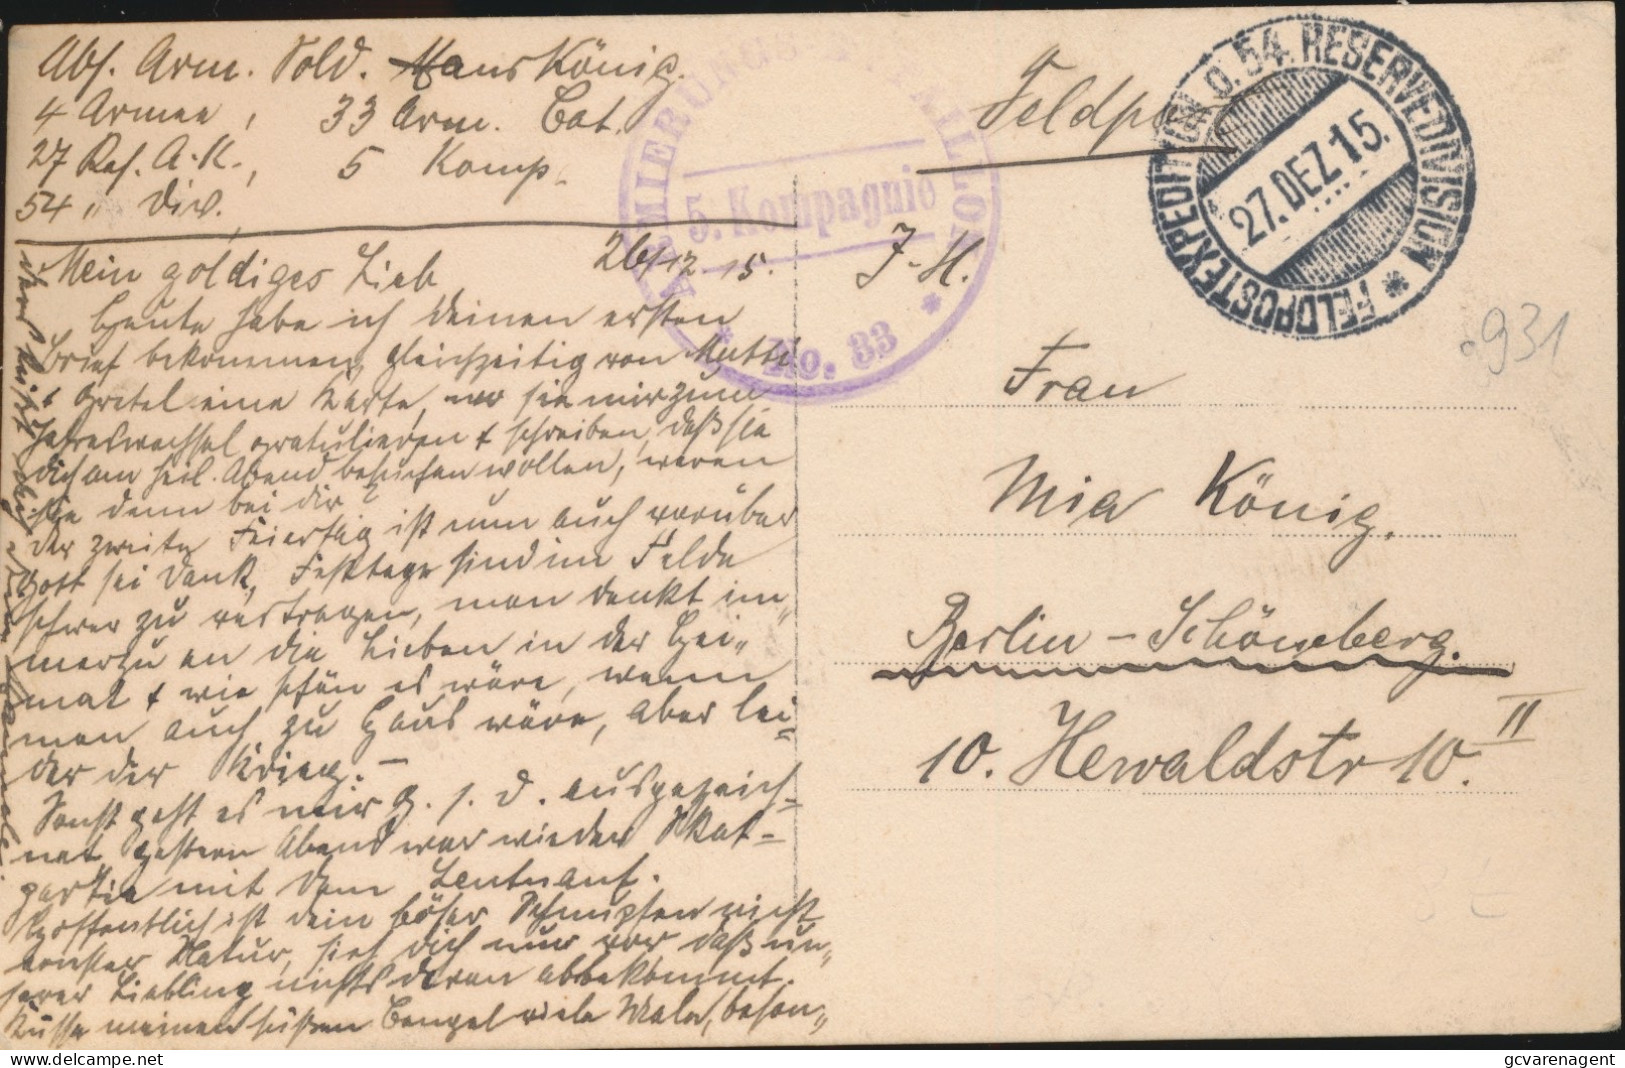 Abs. Arm. Sold. Hans König.
4 Armee, 33 Arm. Bat.
27 Res. A.-K., 5 Komp.
54 " Div.
Mein goldiges Lieb 26/12 15.
Heute habe ich deinen ersten
Brief bekommen, gleichzeitig von Mutti
+ Gretel eine Karte, wo sie mir zum
Jahreswechsel gratulieren + schreiben, daß sie
dich am heil. Abend besuchen wollen, waren
sie denn bei dir?
Der zweite Feiertag ist nun auch vorüber
Gott sei Dank, Festtage sind im Felde
schwer zu ertragen, man denkt im„
merzu an die Lieben in der Hei„
mat + wie schön es wäre, wenn
man auch zu Haus wäre, aber lei=
der der Krieg. –
Sonst geht es mir G. s. D. ausgezeich=
net, gestern Abend war wieder Skat=
partie mit dem Leutnant.
Hoffentlich ist dein böser Schnupfen nicht
ernster Natur, sieh dich nur vor daß un„
serer Liebling nichts davon abbekommt.
Küsse meinen süßen Bengel viele Male, beson„
ARMIERUNGS-BATAILLON
5. Kompagnie
* No. 33 *
Feldpost
FELDPOSTEXPEDITION D. 54. RESERVEDIVISION *
27.DEZ.15.
J-H.
931
Frau
Mia König.
Berlin – Schöneberg.
10. Hewaldstr 10. II
gcvarenagent